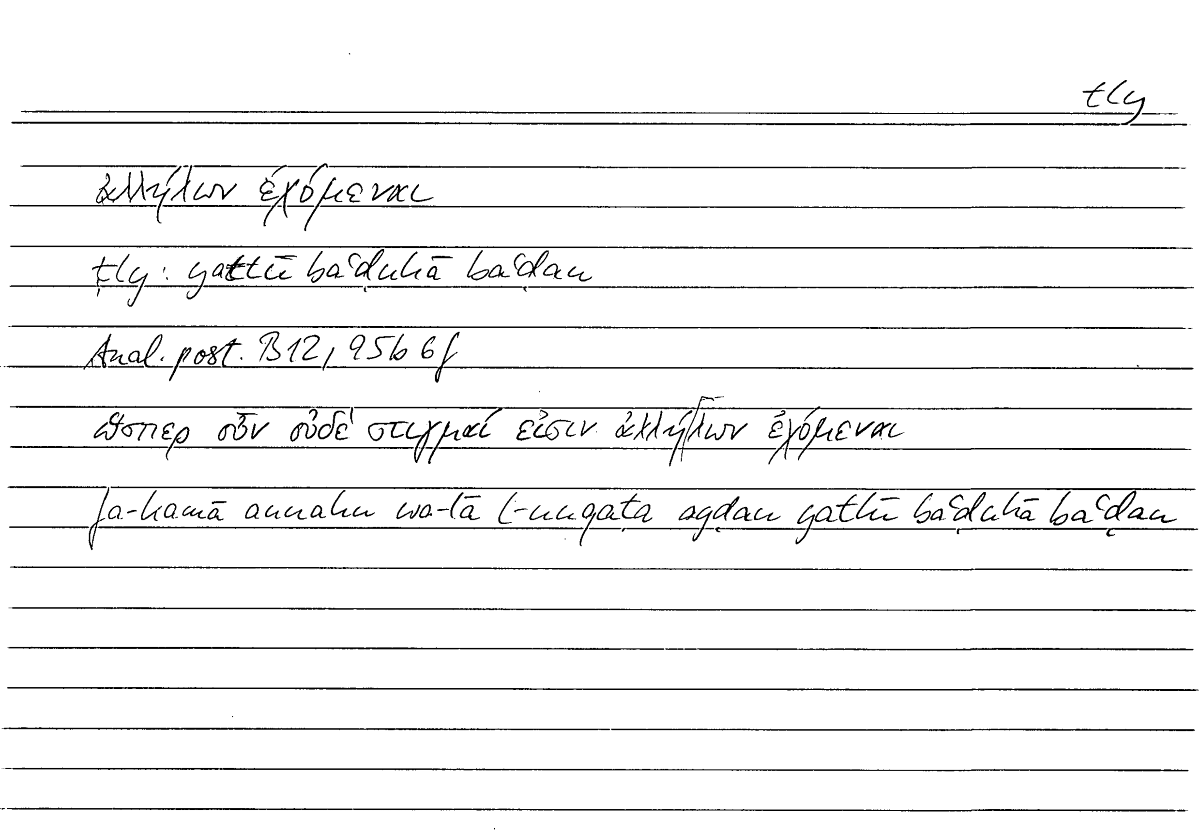 tly
ἀλλήλων ἐχόμεναι
tly: yatlū baʿḍuhā baʿḍan
Anal. post. B12, 95b 6f
ὥσπερ οὖν οὐδέ στιγμαί εἰσιν ἀλλήλων ἐχόμεναι
fa-kamā annahu wa-lā l-nuqaṭa ayḍan yatlū baʿḍuhā baʿḍan